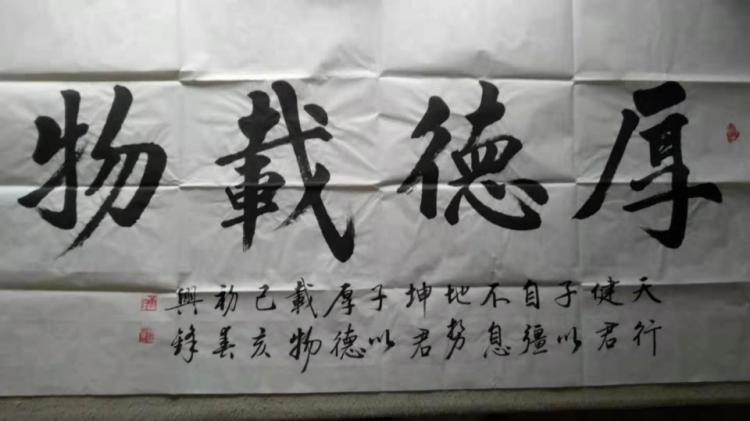 厚德載物
天行
健君
子以
自彊
不息
地勢
坤君
子以
厚德
載物
己亥
初春
興鋒